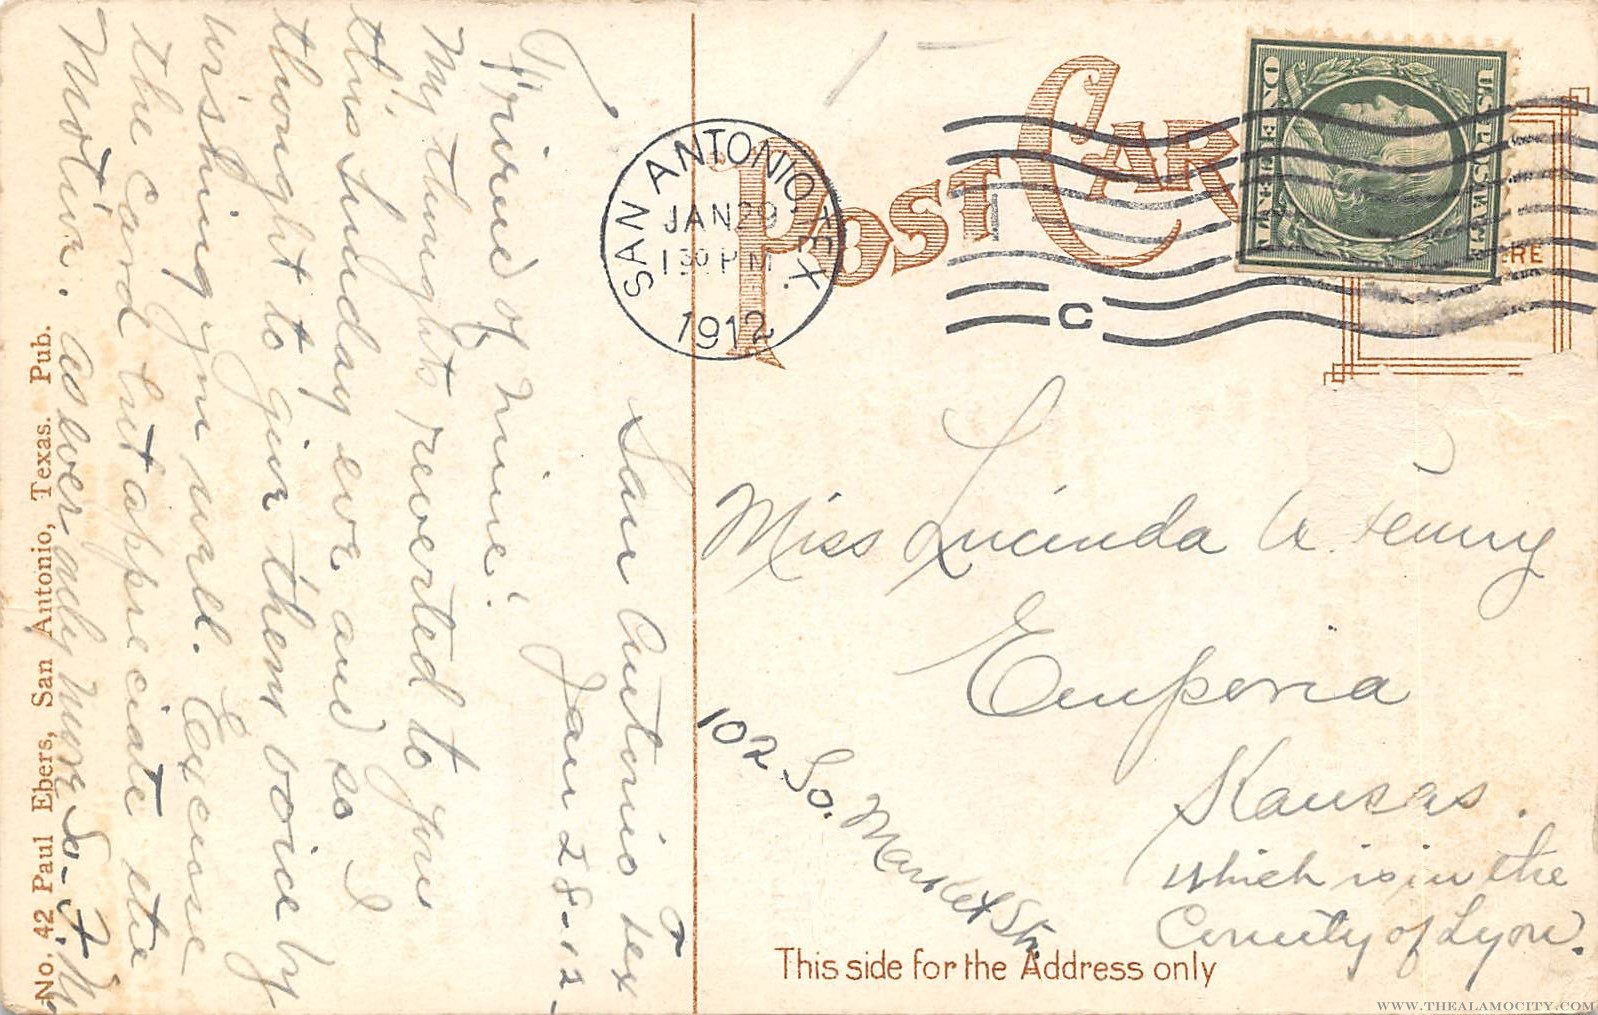 San Antonio Tex
Jan 28-12-
Friend of Mine!
My thoughts reverted to you
this Sunday eve and so I
thought to give them voice by
wishing you well. Excuse
the card but appreciate the
Motive. as ever
No. 42 Paul Ebers, San Antonio, Texas. Pub.
POST CARD
SAN ANTONIO, TEX.
JAN 29
1 30 P M
1912
C
U.S. POSTAGE
ONE CENT
RE
Miss Lucinda A. Fenny
Emporia
Kansas.
which is in the
County of Lyon.
102 So. Market Str.
This side for the Address only
WWW.THEALAMOCITY.COM